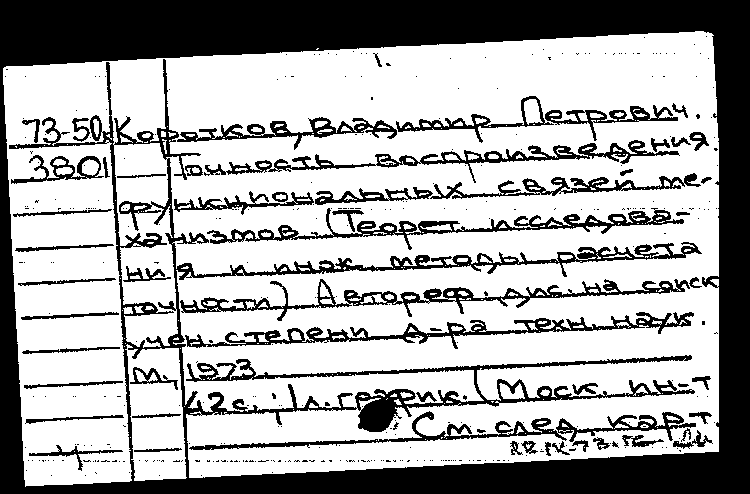 1.
73-50к Коротков, Владимир Петрович.
3801 Точность воспроизведения
функциональных связей ме-
ханизмов. (Теорет. исследова-
ния и инж. методы расчета
точности) Автореф. дис. на соиск
учен. степени д-ра техн. наук.
М., 1973.
42 с.; 1 л. график. (Моск. ин-т
См. след. карт.